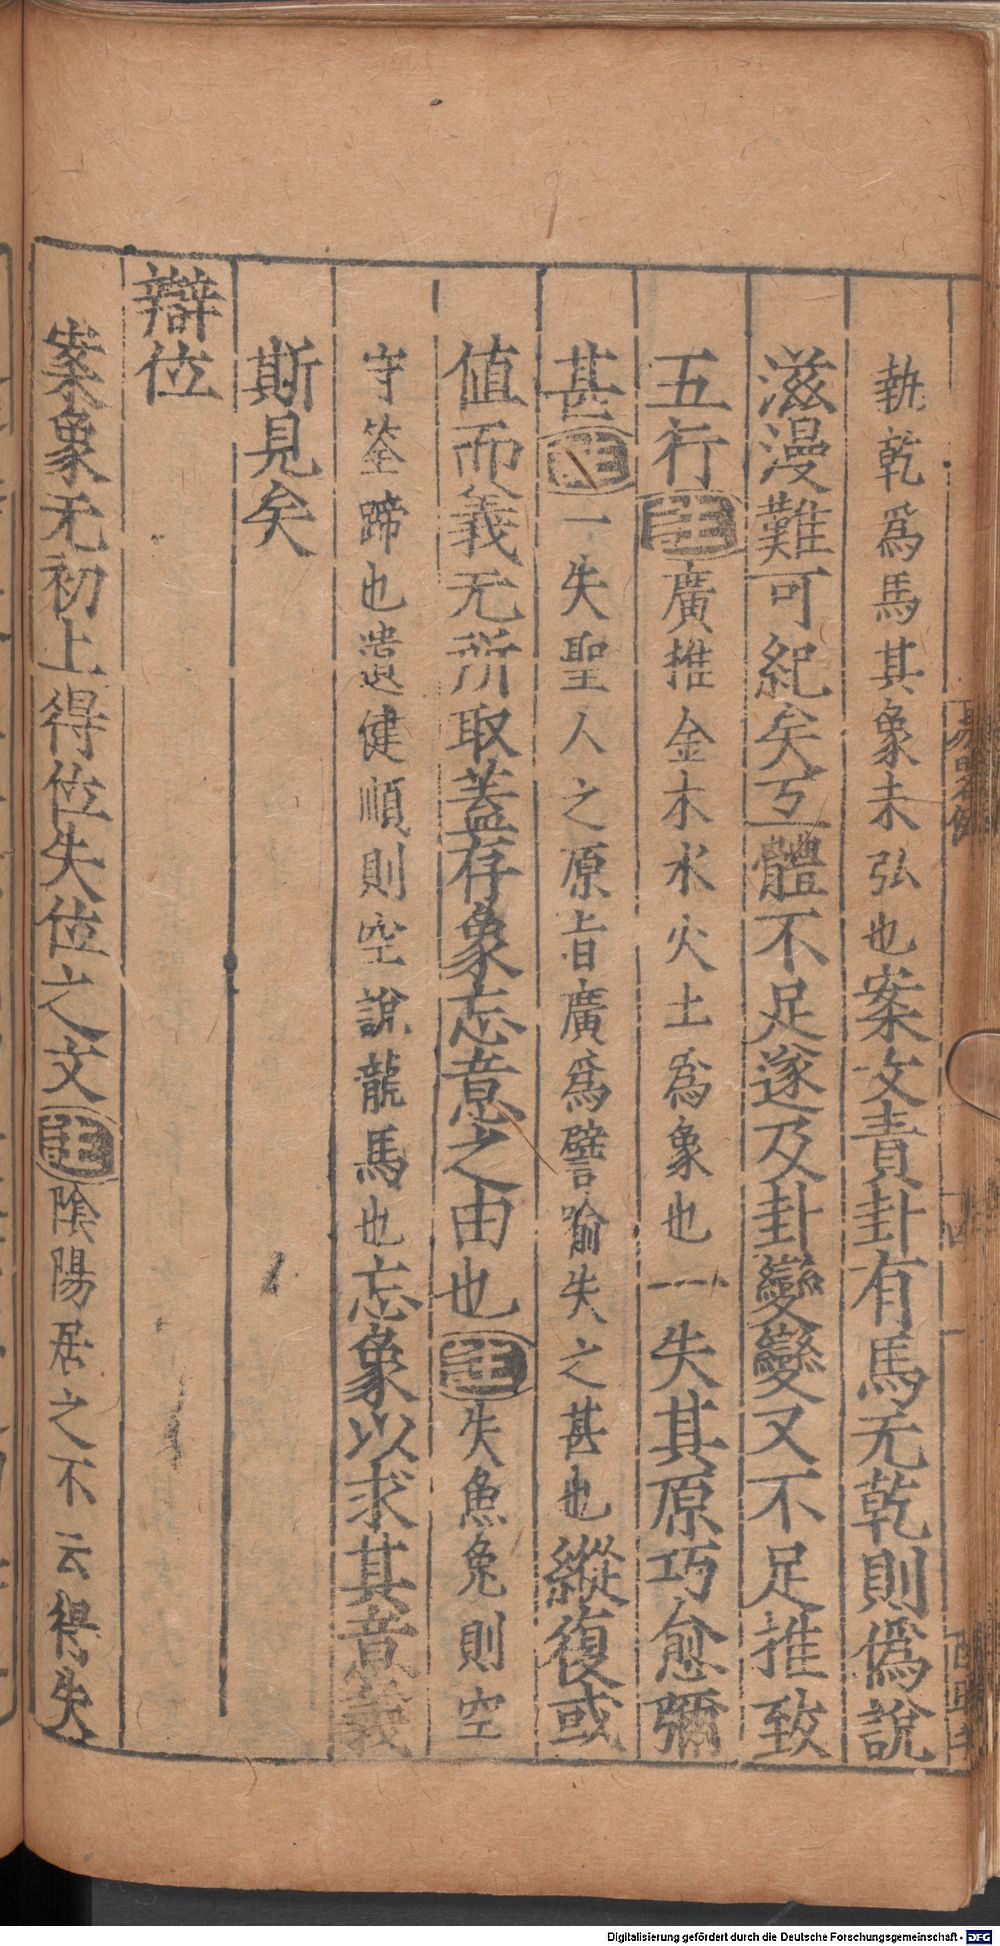 執乾爲馬其象未弘也案文責卦有馬无乾則僞說
滋漫難可紀矣互體不足遂及卦變變又不足推致
五行註廣推金木水火土爲象也一失其原巧愈彌
甚註一失聖人之原旨廣爲譬喻失之甚也縱復或
值而義无所取蓋存象忘意之由也註失魚兔則空
守筌蹄也遺健順則空說龍馬也忘象以求其意義
斯見矣
辯位
案象无初上得位失位之文註陰陽居之不云得失
Digitalisierung gefördert durch die Deutsche Forschungsgemeinschaft - DFG